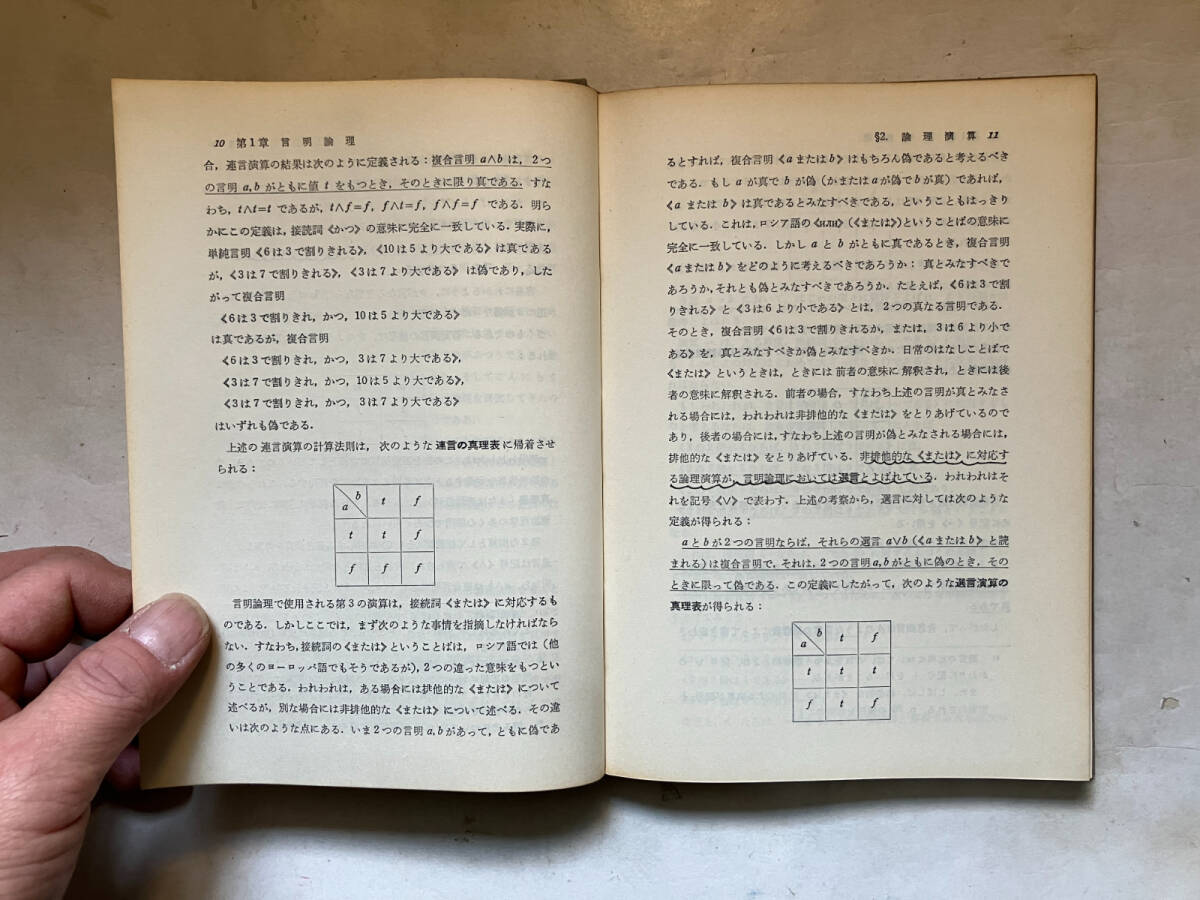 10 第1章 言明論理
合，連言演算の結果は次のように定義される：複合言明 a∧b は，2つ
の言明 a, b がともに値 t をもつとき，そのときに限り真である．すな
わち，t∧t=t であるが，t∧f=f, f∧t=f, f∧f=f である．明ら
かにこの定義は，接続詞《かつ》の意味に完全に一致している．実際に，
単純言明《6は3で割りきれる》，《10は5より大である》は真である
が，《3は7で割りきれる》，《3は7より大である》は偽であり，した
がって複合言明
《6は3で割りきれ，かつ，10は5より大である》
は真であるが，複合言明
《6は3で割りきれ，かつ，3は7より大である》，
《3は7で割りきれ，かつ，10は5より大である》，
《3は7で割りきれ，かつ，3は7より大である》
はいずれも偽である．
上述の連言演算の計算法則は，次のような連言の真理表に帰着させ
られる：
a b t f
t t f
f f f
言明論理で使用される第3の演算は，接続詞《または》に対応するも
のである．しかしここでは，まず次のような事情を指摘しなければなら
ない．すなわち，接続詞の《または》ということばは，ロシア語では（他
の多くのヨーロッパ語でもそうであるが），2つの違った意味をもつとい
うことである．われわれは，ある場合には排他的な《または》について
述べるが，別な場合には非排他的な《または》について述べる．その違
いは次のような点にある．いま2つの言明 a, b があって，ともに偽であ
§2. 論理演算 11
るとすれば，複合言明《a または b》はもちろん偽であると考えるべき
である．もし a が真で b が偽（かまたは a が偽で b が真）であれば，
《a または b》は真であるとみなすべきである，ということもはっきり
している．これは，ロシア語の《или》（《または》）ということばの意味に
完全に一致している．しかし a と b がともに真であるとき，複合言明
《a または b》をどのように考えるべきであろうか：真とみなすべきで
あろうか，それとも偽とみなすべきであろうか．たとえば，《6は3で割
りきれる》と《3は6より小である》とは，2つの真なる言明である．
そのとき，複合言明《6は3で割りきれるか，または，3は6より小で
ある》を，真とみなすべきか偽とみなすべきか．日常のはなしことばで
《または》というときは，ときには前者の意味に解釈され，ときには後
者の意味に解釈される．前者の場合，すなわち上述の言明が真とみなさ
れる場合には，われわれは非排他的な《または》をとりあげているので
あり，後者の場合には，すなわち上述の言明が偽とみなされる場合には，
排他的な《または》をとりあげている．非排他的な《または》に対応す
る論理演算が，言明論理においては選言とよばれている．われわれはそ
れを記号《∨》で表わす．上述の考察から，選言に対しては次のような
定義が得られる：
a と b が2つの言明ならば，それらの選言 a∨b（《a または b》と読
まれる）は複合言明で，それは，2つの言明 a, b がともに偽のとき，その
ときに限って偽である．この定義にしたがって，次のような選言演算の
真理表が得られる：
a b t f
t t t
f t f